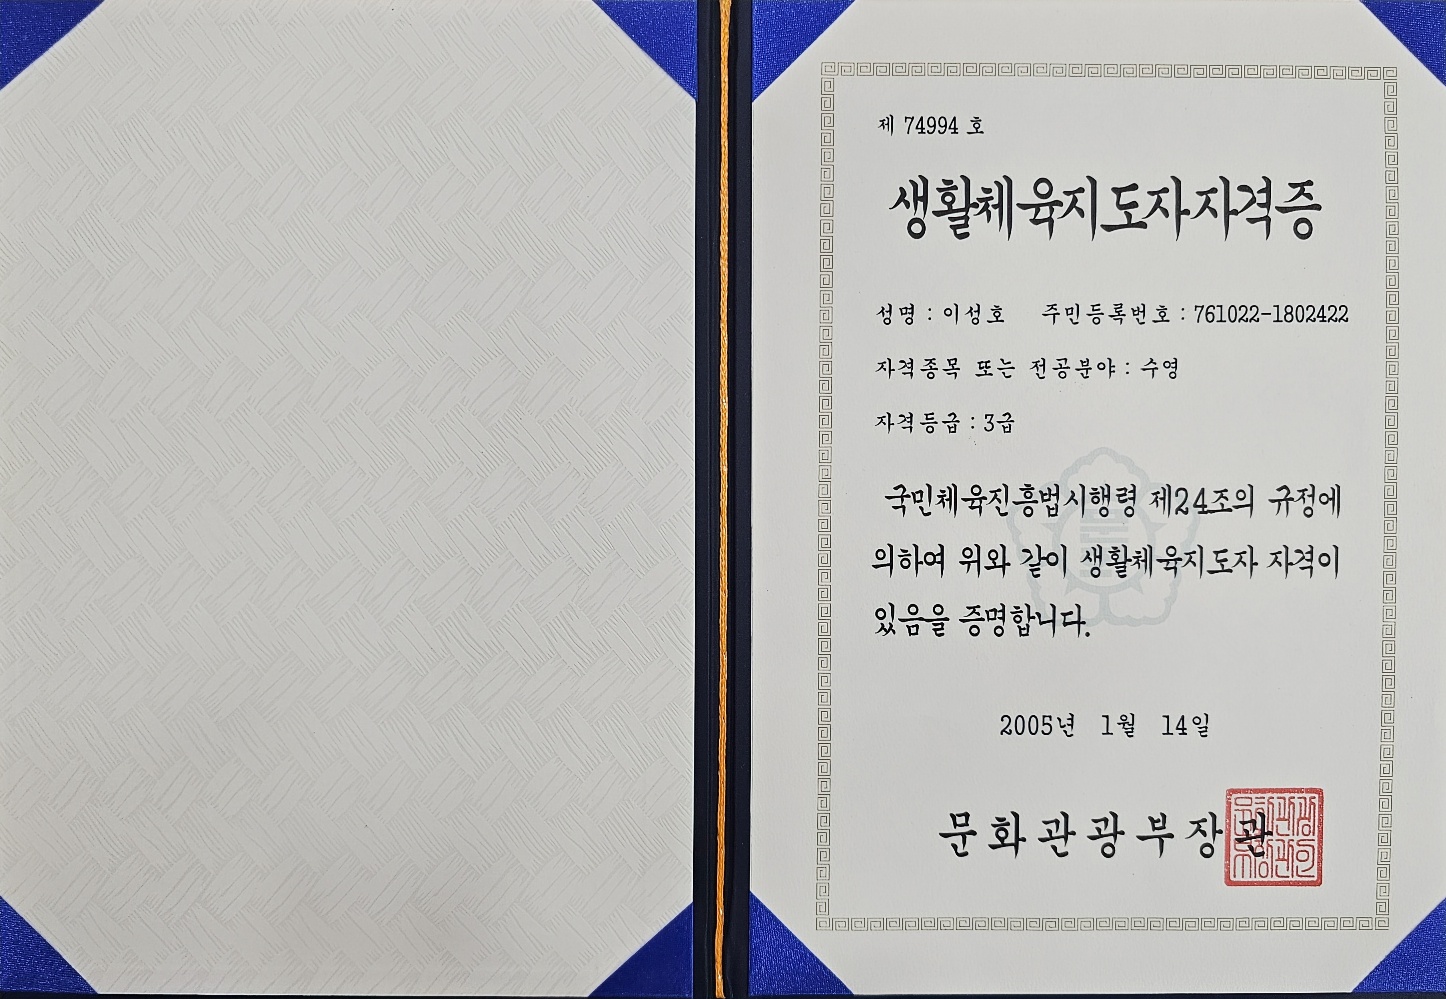 제 74994 호
생활체육지도자자격증
성명 : 이성호 주민등록번호 : 761022-1802422
자격종목 또는 전공분야 : 수영
자격등급 : 3급
국민체육진흥법시행령 제24조의 규정에
의하여 위와 같이 생활체육지도자 자격이
있음을 증명합니다.
2005년 1월 14일
문화관광부장관